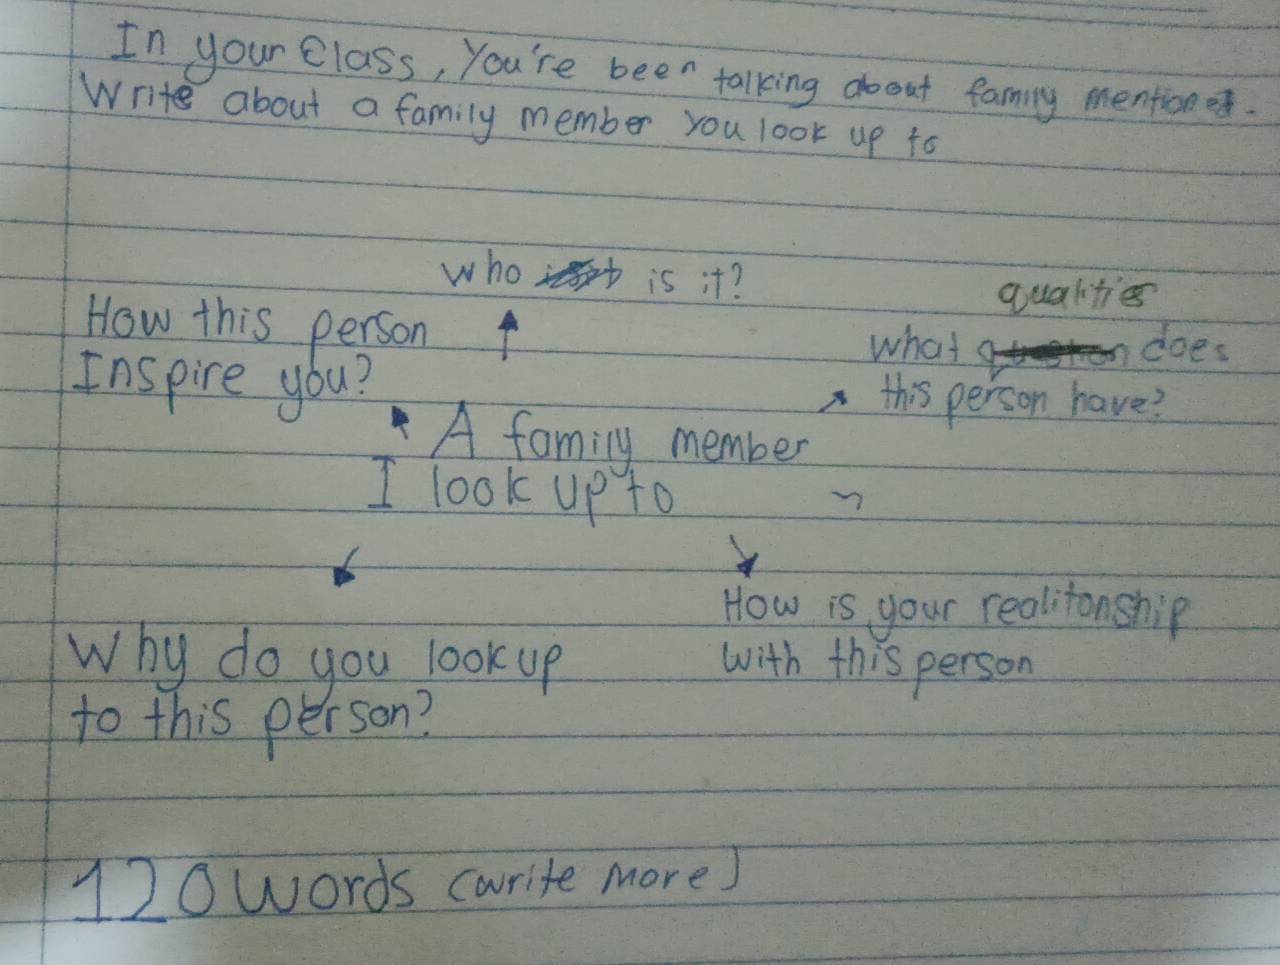 In your Class, You're been talking about family mentioned.
Write about a family member you look up to
Who is it?
How this person
Inspire you?
qualities
what does
this person have?
A family member
I look up to
How is your realitonship
with this person
Why do you look up
to this person?
120 words (write more)